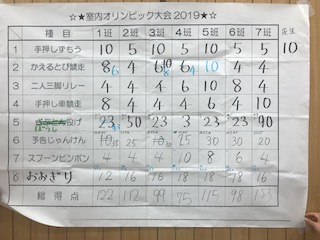 ☆★室内オリンピック大会2019★☆
種目 1班 2班 3班 4班 5班 6班 7班 先生
1 手押しずもう 10 5 10 5 10 5 5 10
2 かえるとび競走 8 6 4 10 8 6 10 4 4
3 二人三脚リレー 4 4 6 10 8 4 4
4 手押し車競走 8 6 4 6 4 4 10
5 ぼうし投げ 23 50 23 7 23 90
6 予告じゃんけん 35 25 30 30 20
7 スプーンピンポン 4 4 4 10 8 6 4
8 おおぎり 12 16 16
総得点 122 112 99 75 115 98 153